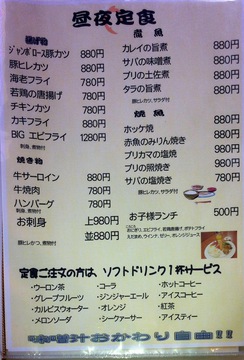 昼夜定食
揚げ物
ジャンボロース豚カツ 880円
豚ヒレカツ 880円
海老フライ 780円
若鶏の唐揚げ 780円
チキンカツ 780円
カキフライ 880円
BIG エビフライ 1280円
刺身、煮物付
焼き物
牛サーロイン 880円
牛焼肉 780円
ハンバーグ 780円
お刺身 上980円
並880円
豚ヒレかつ、煮物付
煮魚
カレイの旨煮 880円
サバの味噌煮 780円
ブリの土佐煮 780円
タラの旨煮 780円
豚ヒレカツ、サラダ付
焼魚
ホッケ焼 880円
赤魚のみりん焼き 780円
ブリカマの塩焼 780円
ブリの照焼き 780円
サバの塩焼き 780円
豚ヒレカツ、サラダ付
お子様ランチ 500円
定食ご注文の方は、ソフトドリンク1杯サービス
・ウーロン茶 ・コーラ ・ホットコーヒー
・グレープフルーツ ・ジンジャーエール ・アイスコーヒー
・カルピスウォーター ・オレンジ ・紅茶
・メロンソーダ ・シークァーサー ・アイスティー
味噌汁おかわり自由!!